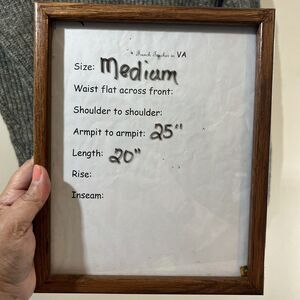 Thrift Together in VA
Size: Medium
Waist flat across front:
Shoulder to shoulder:
Armpit to armpit: 25"
Length: 20"
Rise:
Inseam: